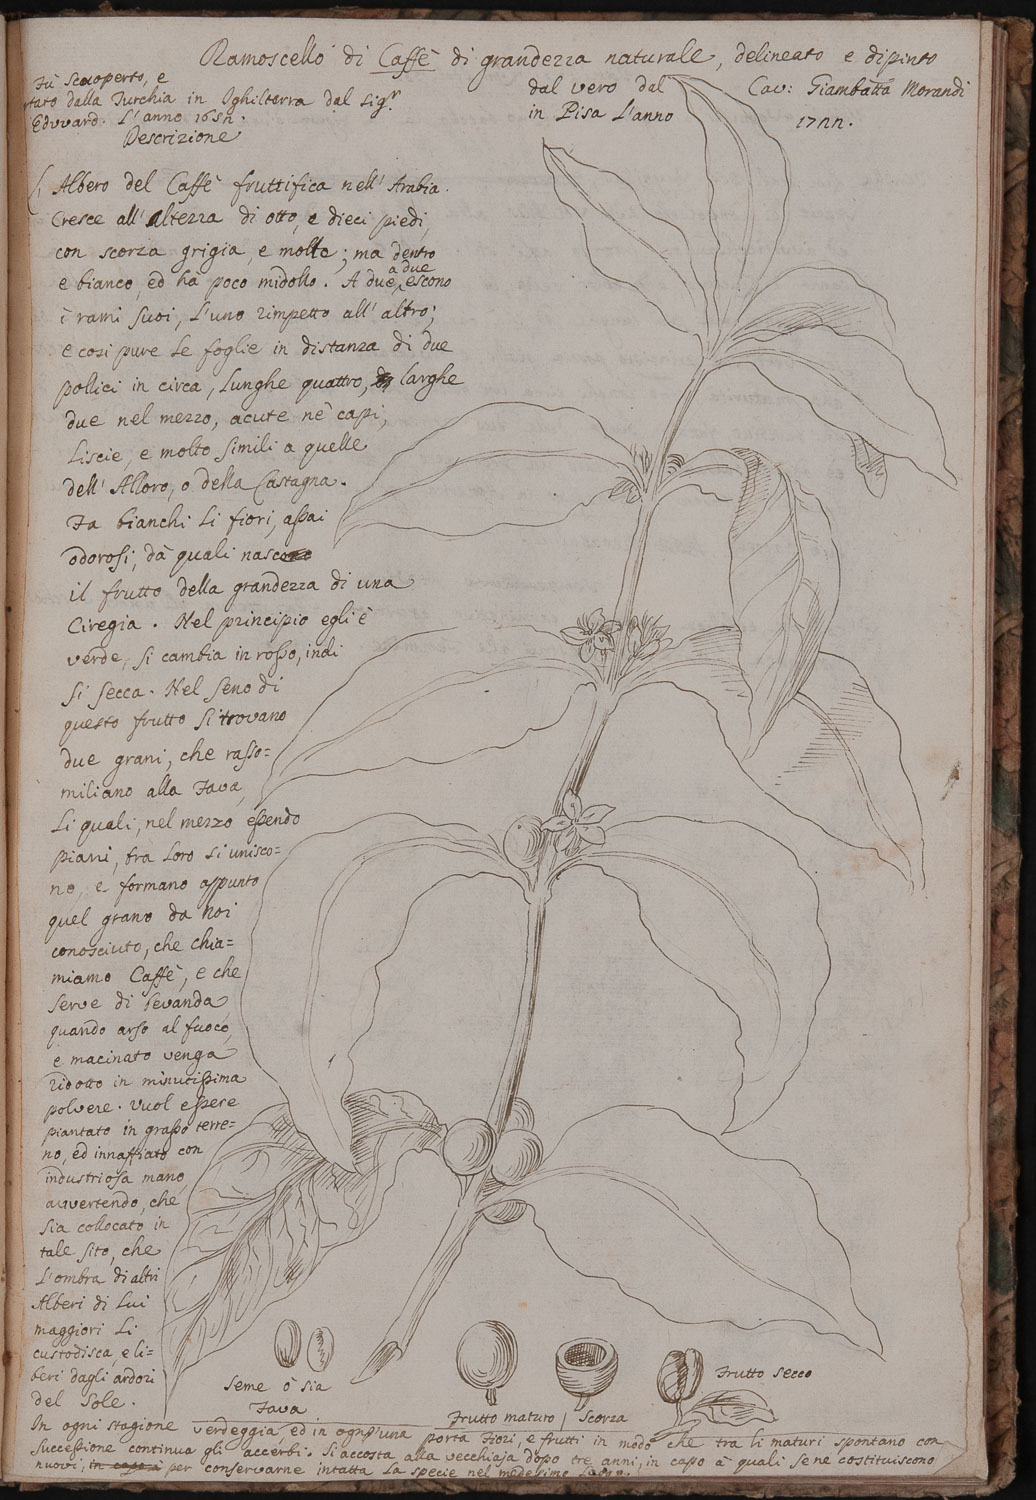 Ramoscello di Caffè di grandezza naturale, delineato e dipinto
dal vero dal Cav: Giambatta Morandi
in Pisa L'anno 1722.
Fù Scuoperto, e
tato dalla Turchia in Ighilterra dal Sigr
Edward. L'anno 1652.
Descrizione
L' Albero del Caffè fruttifica nell' Arabia.
Cresce all' Altezza di otto, o dieci piedi,
con scorza grigia, e molle; ma dentro
e bianco, ed hà poco midollo. A due a due, escono
i rami suoi, L'uno rimpetto all' altro;
e così pure Le foglie in distanza di due
pollici in circa, Lunghe quattro, larghe
due nel mezzo, acute ne' capi,
Liscie, e molto simili a quelle
dell' Alloro, o della Castagna.
Fa bianchi Li fiori, assai
odorosi, dà quali nasce
il frutto della grandezza di una
Ciregia. Nel principio egli è
verde, si cambia in rosso, indi
si secca. Nel seno di
questo frutto si trovano
due grani, che rasso=
miliano alla Fava,
Li quali, nel mezzo essendo
piani, tra Loro si unisco=
no, e formano appunto
quel grano da Noi
conosciuto, che chia=
miamo Caffè, e che
serve di bevanda
quando arso al fuoco,
e macinato venga
ridotto in minutissima
polvere. Vuol essere
piantato in grasso terre=
no, ed innaffiato con
industriosa mano,
avvertendo, che
sia collocato in
tale sito, che
L'ombra di altri
Alberi di Lui
maggiori Li
custodisca, e li=
beri dagli ardori
del Sole.
Seme ò sia
Fava
Frutto maturo
Scorza
Frutto secco
In ogni stagione verdeggia, ed in ogn'una porta Fiori, e frutti in modo che tra li maturi spontano con
successione continua gli accerbi. Si accosta alla vecchiaja dopo tre anni, in capo à quali se ne costituiscono
nuovi, per conservarne intatta La specie nel medesimo